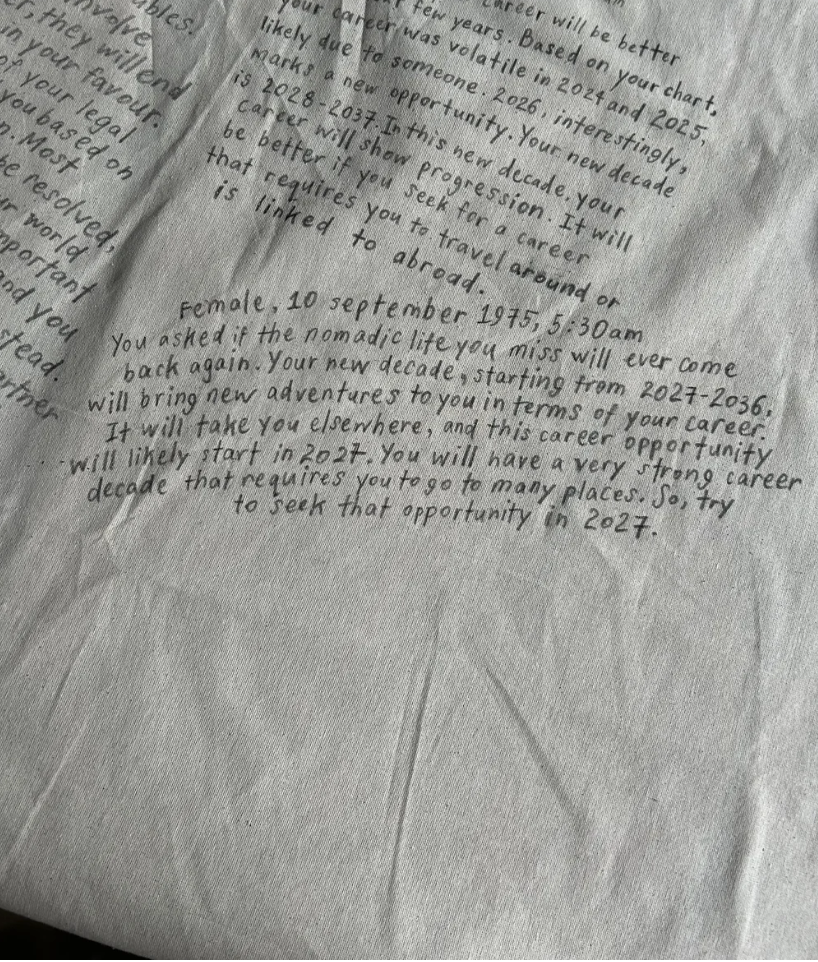 ables.
involve
er, they will end
in your favour.
of your legal
you based on
n. Most
be resolved,
ur world
mportant
and you
stead.
artner
career will be better
few years. Based on your chart,
your career was volatile in 2024 and 2025,
likely due to someone. 2026, interestingly,
marks a new opportunity. Your new decade
is 2028-2037. In this new decade, your
career will show progression. It will
be better if you seek for a career
that requires you to travel around or
is linked to abroad.
Female, 10 september 1975, 5:30am
You asked if the nomadic life you miss will ever come
back again. Your new decade, starting from 2027-2036,
will bring new adventures to you in terms of your career.
It will take you elsewhere, and this career opportunity
will likely start in 2027. You will have a very strong career
decade that requires you to go to many places. So, try
to seek that opportunity in 2027.